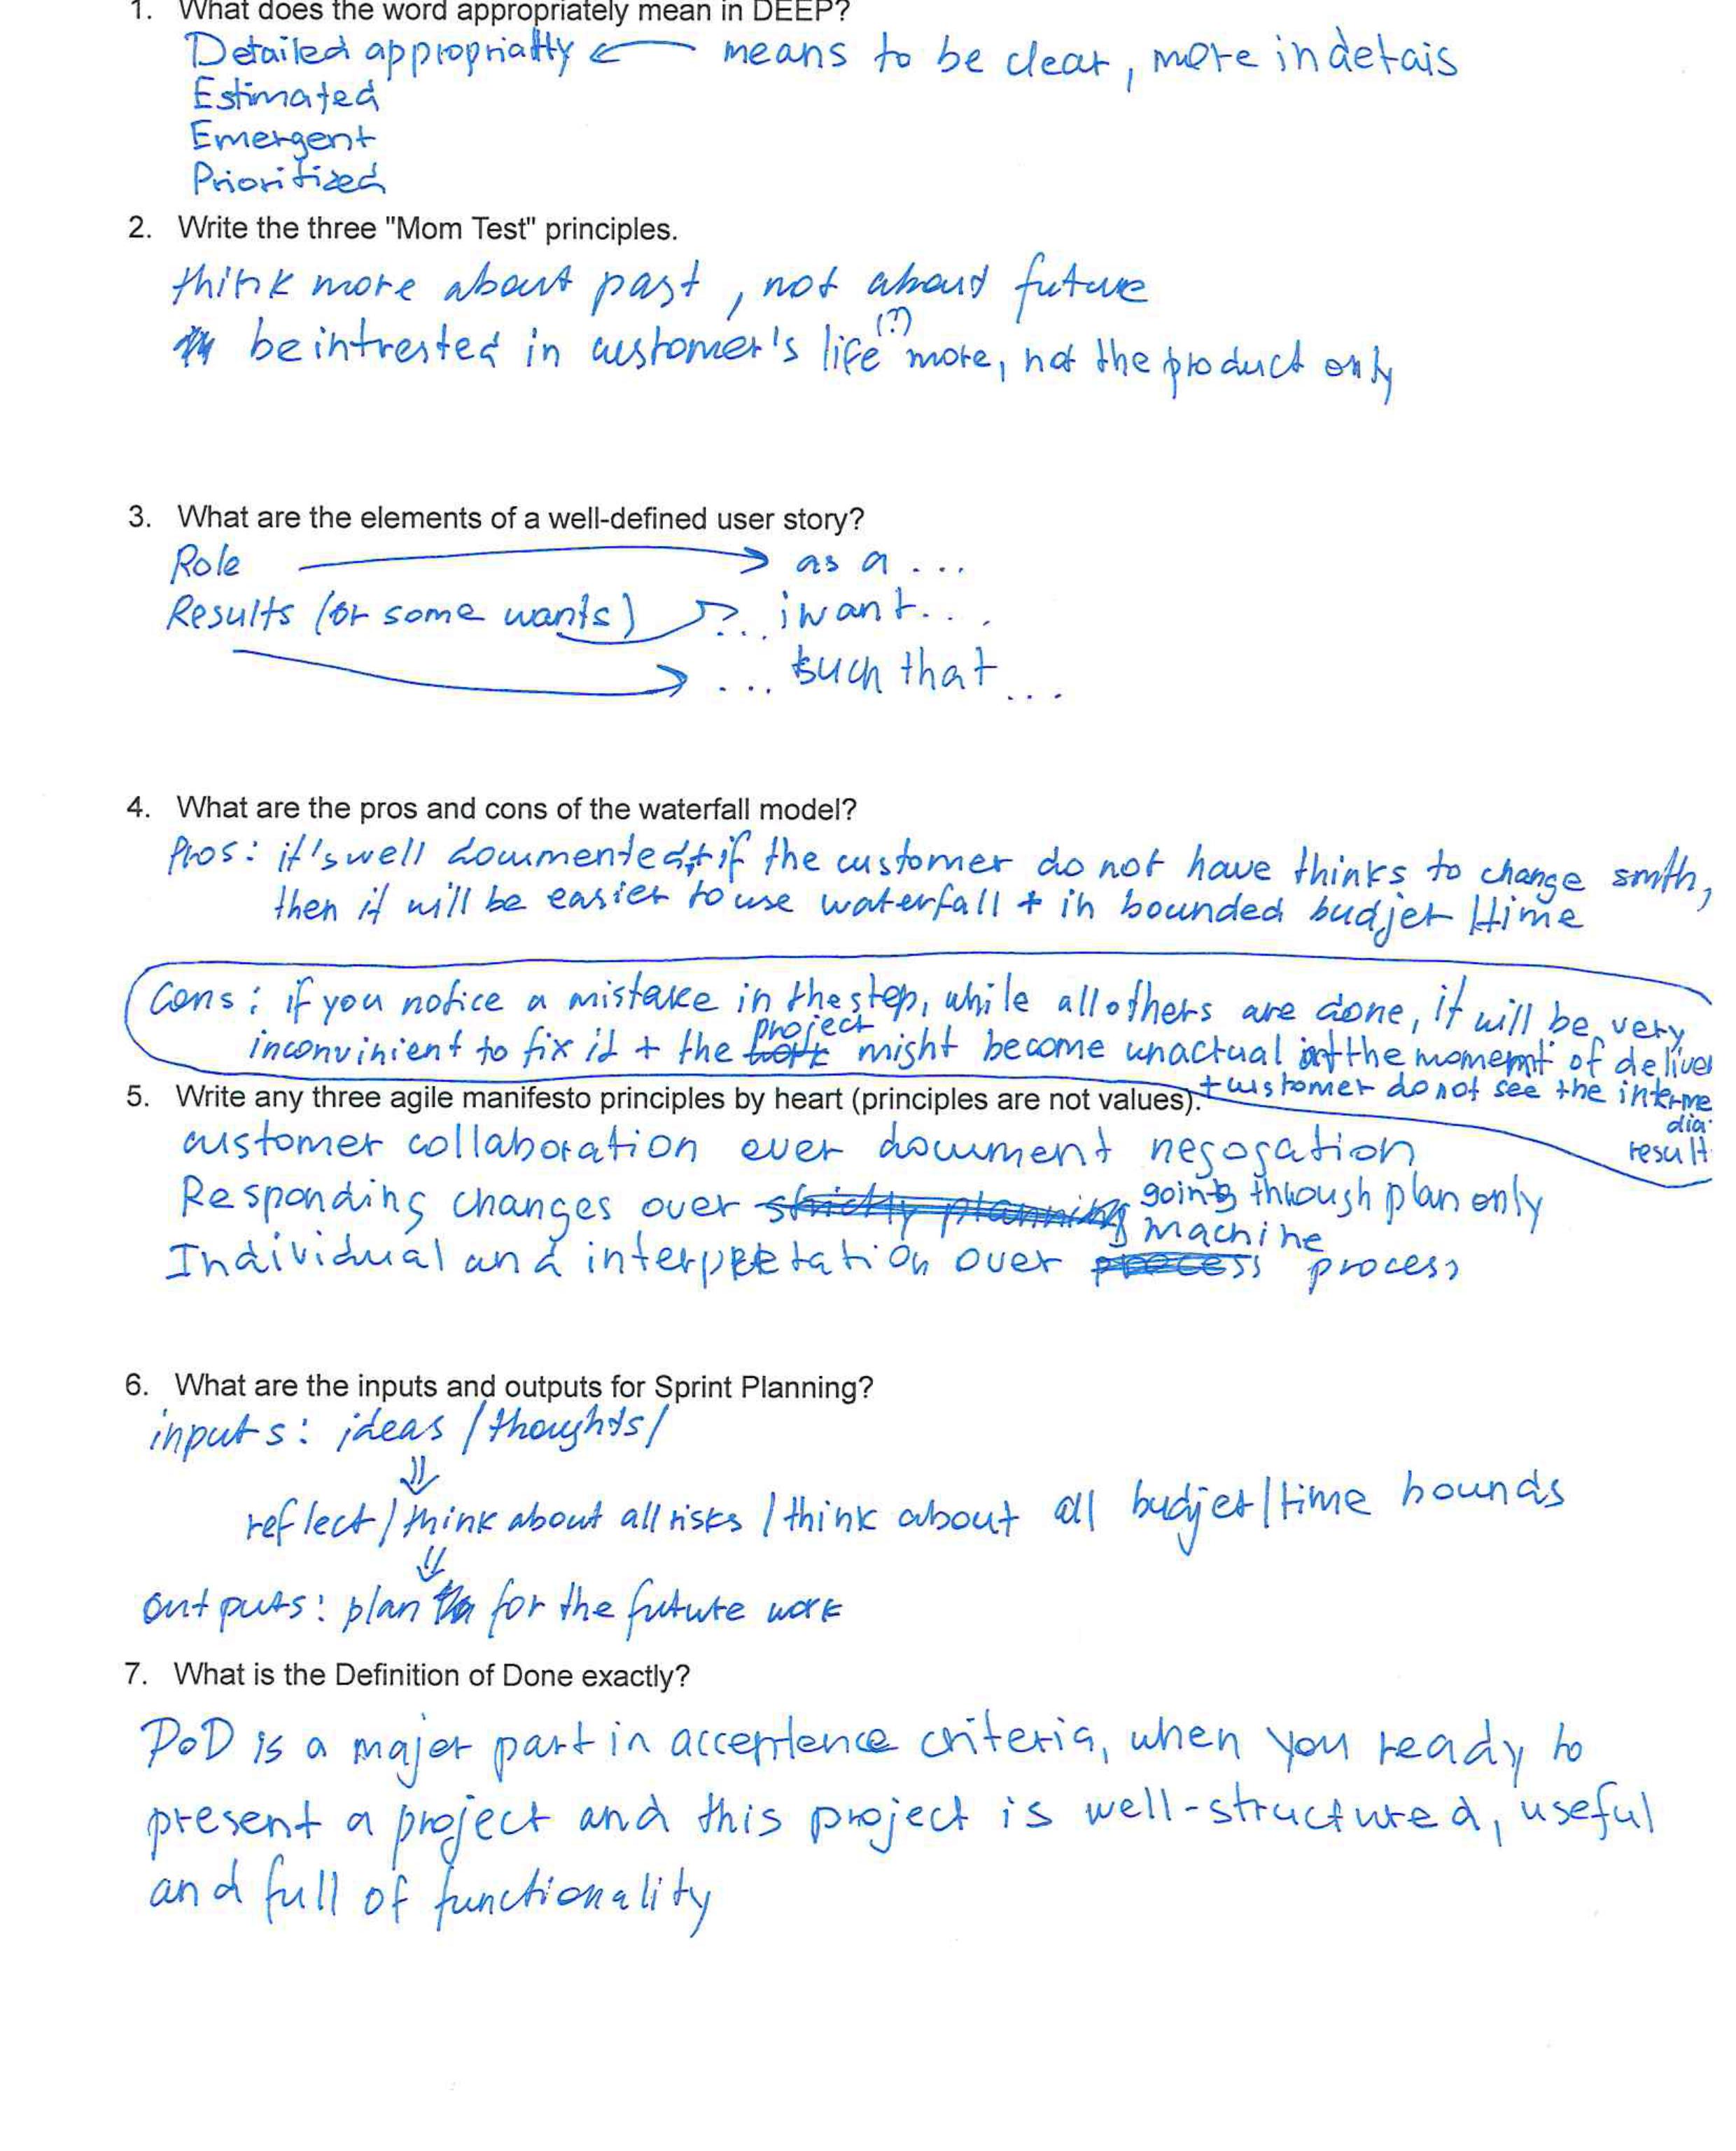 1. What does the word appropriately mean in DEEP?
Detailed appropriatly ← means to be clear, more in detais
Estimated
Emergent
Prioritized
2. Write the three "Mom Test" principles.
think more about past, not about future
be intrested in customer's life (?) more, not the product only
3. What are the elements of a well-defined user story?
Role → as a ...
Results (or some wants) → ?... i want...
→ ... such that ...
4. What are the pros and cons of the waterfall model?
Pros: it's well documented, + if the customer do not have thinks to change smth,
then it will be easier to use waterfall + in bounded budjet / time
Cons: if you notice a mistake in the step, while all others are done, it will be very
inconvinient to fix it + the project might become unactual at the moment of deliver
+ customer do not see the interme
dia
result
5. Write any three agile manifesto principles by heart (principles are not values).
customer collaboration over document negogation
Responding changes over going through plan only
Individual and interpretation over machine process
6. What are the inputs and outputs for Sprint Planning?
inputs: ideas / thoughts /
⇓
reflect / think about all risks / think about all budjet / time bounds
⇓
outputs: plan for the future work
7. What is the Definition of Done exactly?
DoD is a major part in acceptence criteria, when you ready to
present a project and this project is well-structured, useful
and full of functionality